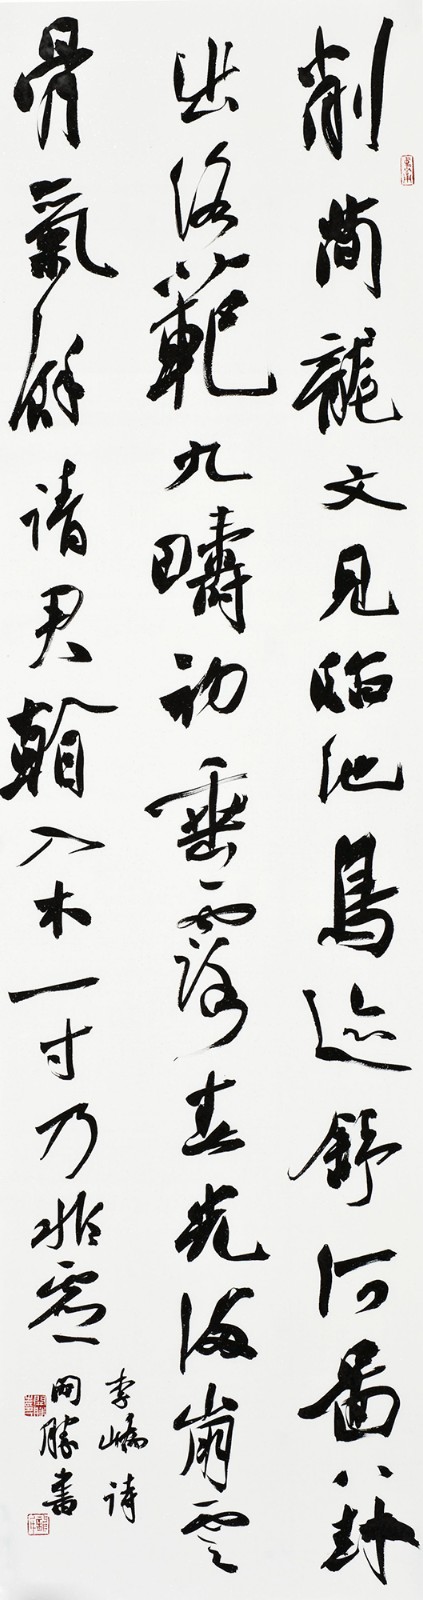 削簡龍文見臨池鳥迹舒河圖八卦
出洛範九疇初垂露春光滿崩雲
骨氣餘請君翰入木一寸乃非虛
李嶠詩
開勝書